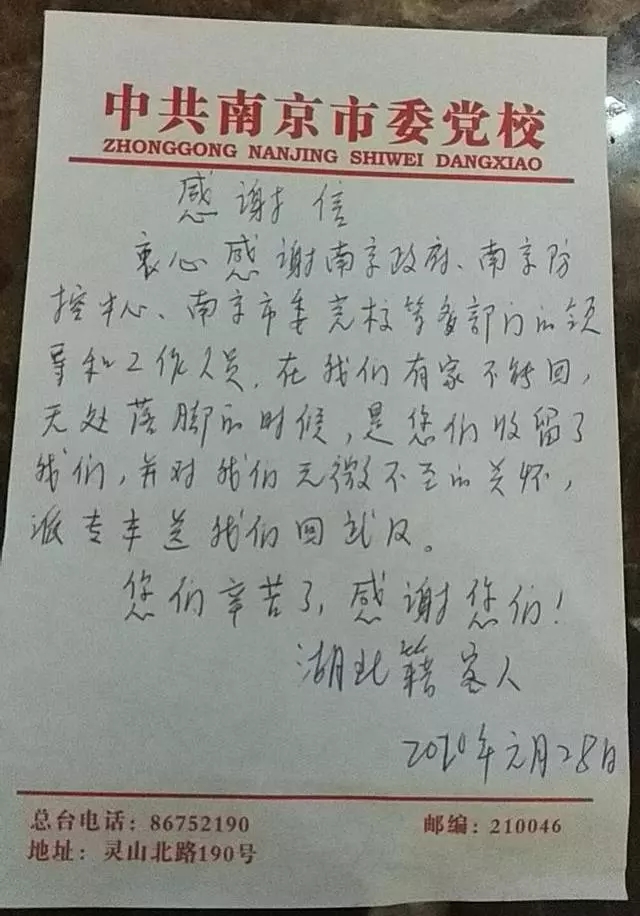 中共南京市委党校
ZHONGGONG NANJING SHIWEI DANGXIAO
感谢信
衷心感谢南京政府、南京防
控中心、南京市委党校等各部门的领
导和工作人员，在我们有家不能回，
无处落脚的时候，是您们收留了
我们，并对我们无微不至的关怀，
派专车送我们回武汉。
您们辛苦了，感谢您们！
湖北籍客人
2020年元月28日
总台电话：86752190 邮编：210046
地址：灵山北路190号